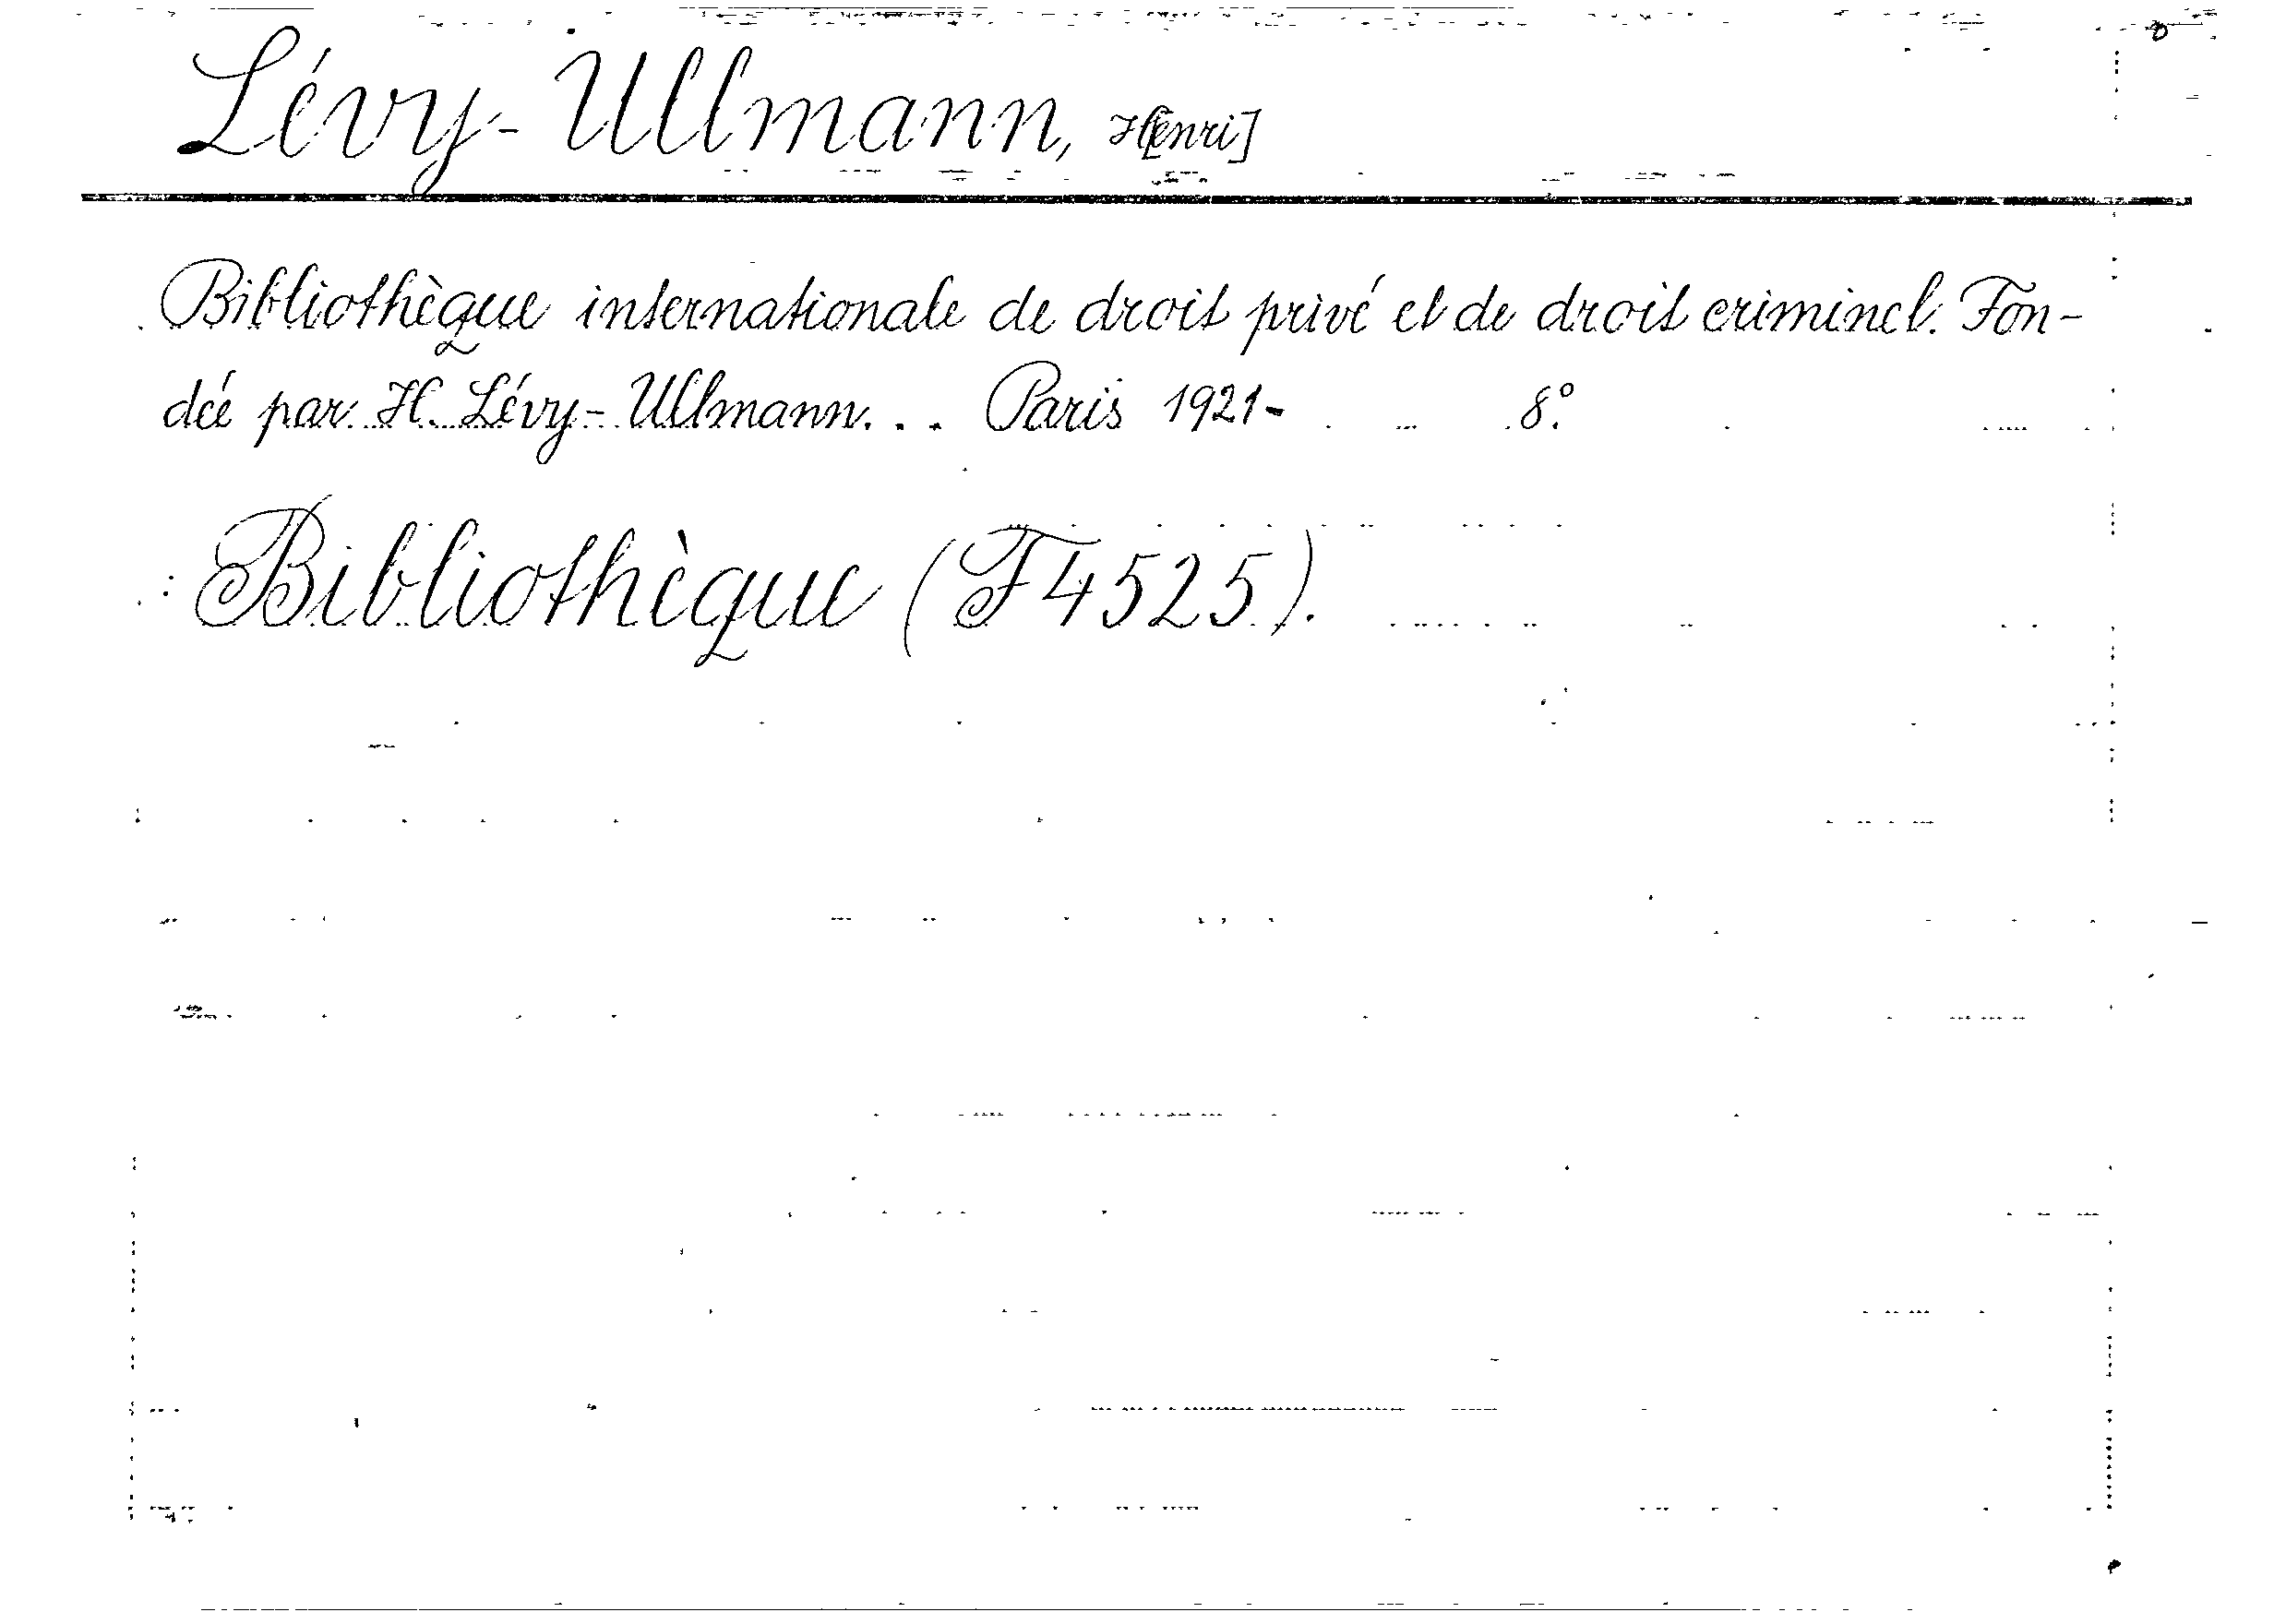 Lévy-Ullmann, H[enri]
Bibliothèque internationale de droit privé et de droit criminel. Fon-
dée par H. Lévy-Ullmann... Paris 1921- 8°.
Bibliothèque (F4525).